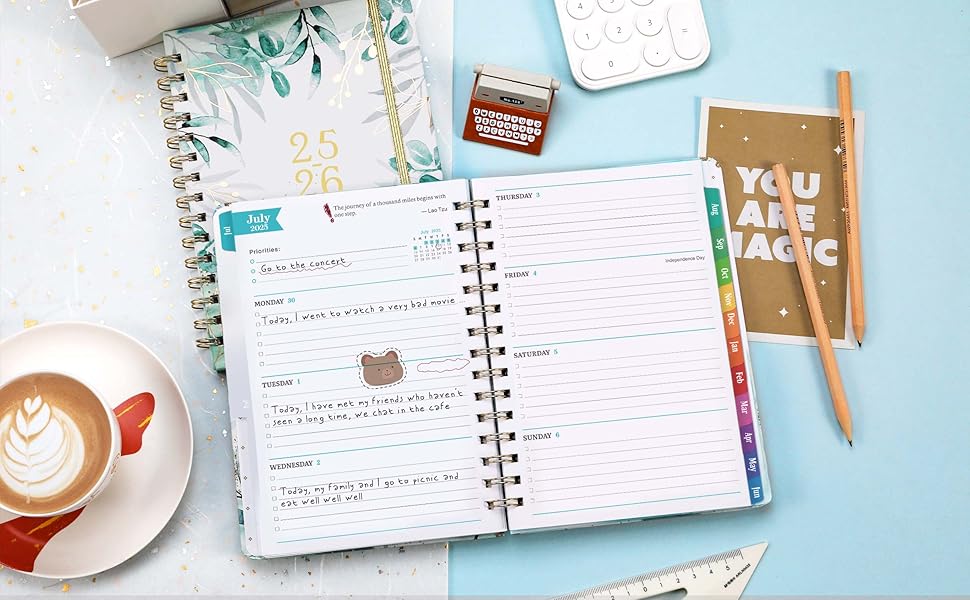 25
26
Jul
July
2025
The journey of a thousand miles begins with
one step.
— Lao Tzu
July 2025
S M T W T F S
Priorities:
Go to the concert
MONDAY 30
Today, I went to watch a very bad movie
TUESDAY 1
Today, I have met my friends who haven't
seen a long time, we chat in the cafe
WEDNESDAY 2
Today, my family and I go to picnic and
eat well well well
THURSDAY 3
FRIDAY 4
Independence Day
SATURDAY 5
SUNDAY 6
Aug
Sep
Oct
Nov
Dec
Jan
Feb
Mar
Apr
May
Jun
QWERTYUIO
YOU
ARE
MAGIC
0
1
2
3